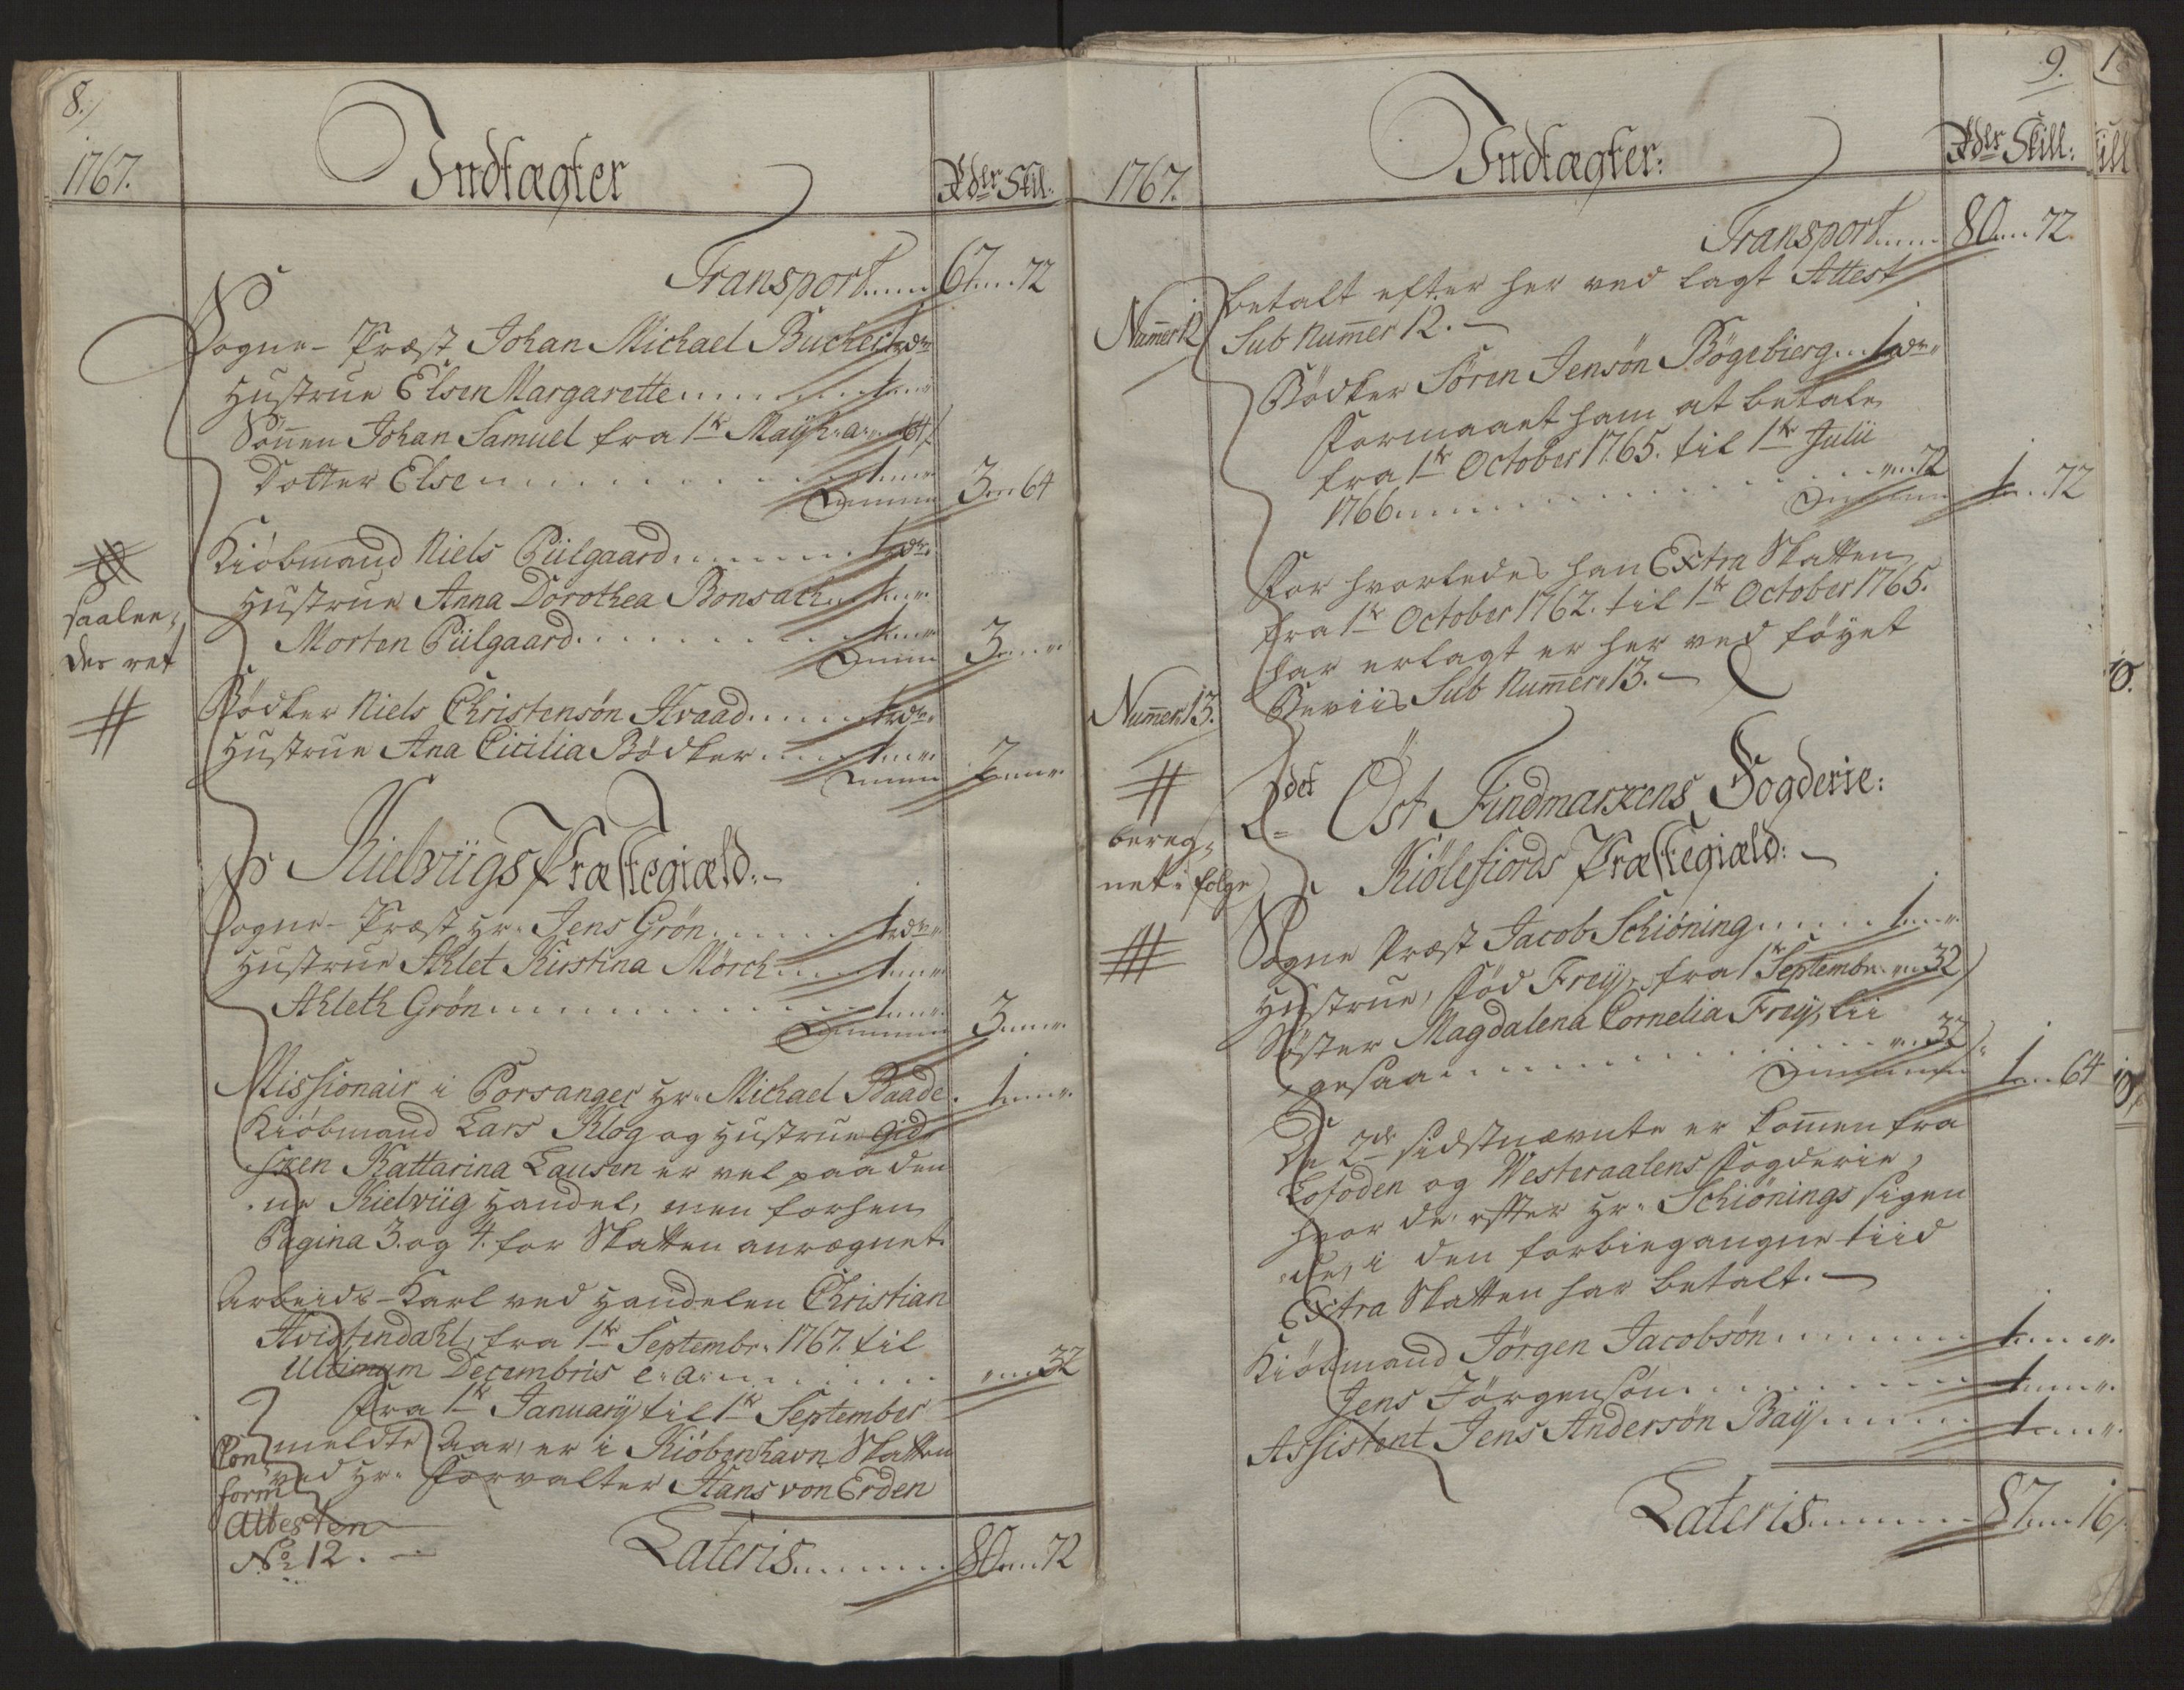 8./
1767.
Indtægter
Rdlr Skil:
Transport..... 67....72
Sogne-Præst Johan Michael Bucher 1 rdr
Hustrue Elsen Margarette............1....
Sönnen Johan Samuel fra 1te Maÿ h: a: ... 64/
Dotter Else.................1....
3...64
Kiöbmand Niels Pülgaard.......1 rdr
Hustrue Anna Dorothea Bonsach..1....
Morten Pülgaard..............1....
3.....
Bödker Niels Christensön Hvaad.....1 rdr
Hustrue Ana Cicilia Bödker.....1....
2.....
saalee-
des ret
Kielviigs Præstegiæld:-
Sogne-Præst Hr: Jens Grön......1 rdr
Hustrue Ahlet Kirstina Mörch....1....
Ahleth Grön.................1....
3.....
Missionair i Porsanger Hr: Michael Baade. 1.....
Kiöbmand Lars Klog og Hustrue Gid
sken Kattarina Lausen er vel paa den
ne Kielviig Handel, men forhen
Pagina 3. og 4. for Skatten anregnet.
Arbeids-Karl ved Handelen Christian
Hvidtendahl, fra 1te Septembr: 1767. til
Ultimum Decembris e: a:............32
Fra 1te Januarÿ til 1te September
meldte Aar, er i Kiöbenhavn Skatten
ved Hr: Forvalter Hans von Erden
Con
form
Attesten
No: 12.
Lateris....... 80....72
9.
1767.
Indtægter:
Rdlr Skill:
Transport..... 80....72.
Numer 12
betalt efter her ved lagt Attest
Sub Numer 12.-
Bödker Sören Jensön Bögebierg... 1 rdr
Formaaet ham at betale
fra 1te October 1765. til 1te Julii
1766.............72
1...72
For hvorledes han Extra Skatten
fra 1te October 1762. til 1te October 1765.
har erlagt er her ved föyet
Numer 13.
Beviis Sub Numer 13.-
2det Öst Findmarkens Fogderie:
bereg-
net i følge
Kiölefiords Præstegiæld:-
Sogne Præst Jacob Schiöning......1....
Hustrue, Föd Freÿ, fra 1te Septembr: ...32/
Söster Magdalena Cornelia Freÿ, lii
gesaa..............32/
1...64
De 2de sidstnævnte er komen fra
Lofoden og Westeraalens Fogderie,
hvor de, efter Hr: Schiönings sigen
de, i den forbiegangne tiid
Extra Skatten har betalt.-
Kiöbmand Jörgen Jacobsön.......1....
Jens Jörgensön..............1....
Assistent Jens Andersön Baÿ......1....
Lateris....... 87....16/